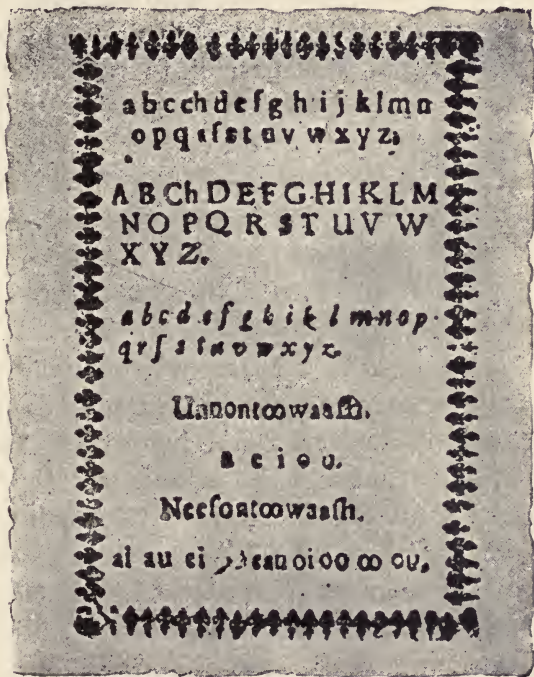 a b c ch d e f g h i j k l m n
o p q r ſ s t u v w x y z,
A B Ch D E F G H I K L M
N O P Q R S T U V W
X Y Z.
a b c d e f g h i k l m n o p
q r ſ s t u v w x y z.
Unnontꝏwaaſh.
a e i o u.
Neeſontꝏwaaſh.
al au ei eau oi oo ꝏ ou.